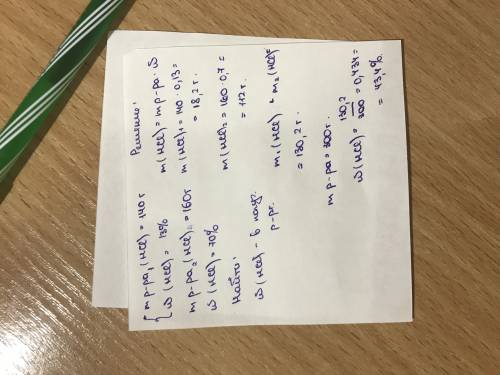 { m р-ра₁ (HCl) = 140 г
ω (HCl) = 13%
m р-ра₂ (HCl) = 160 г
ω (HCl) = 70%
Найти:
ω (HCl) - в получ.
р-ре.
Решение:
m (HCl) = m р-ра · ω
m (HCl)₁ = 140 · 0,13 =
= 18,2 г.
m (HCl)₂ = 160 · 0,7 =
= 112 г.
m₁ (HCl) + m₂ (HCl) =
= 130,2 г.
m р-ра = 300 г.
ω (HCl) = 130,2 / 300 = 0,434 =
= 43,4%.